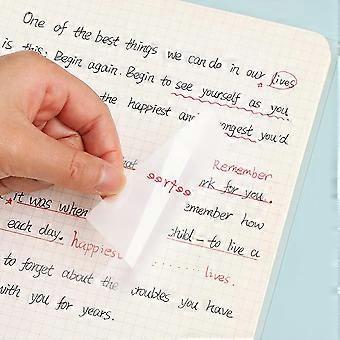 One of the best things we can do in our lives
is this: Begin again. Begin to see yourself as you
the happiest and ongest you'd
Remember
rk for you.
rt was when emember how
each day. happies child - to live a
lives.
to forget about the troubles you have
with you for years.